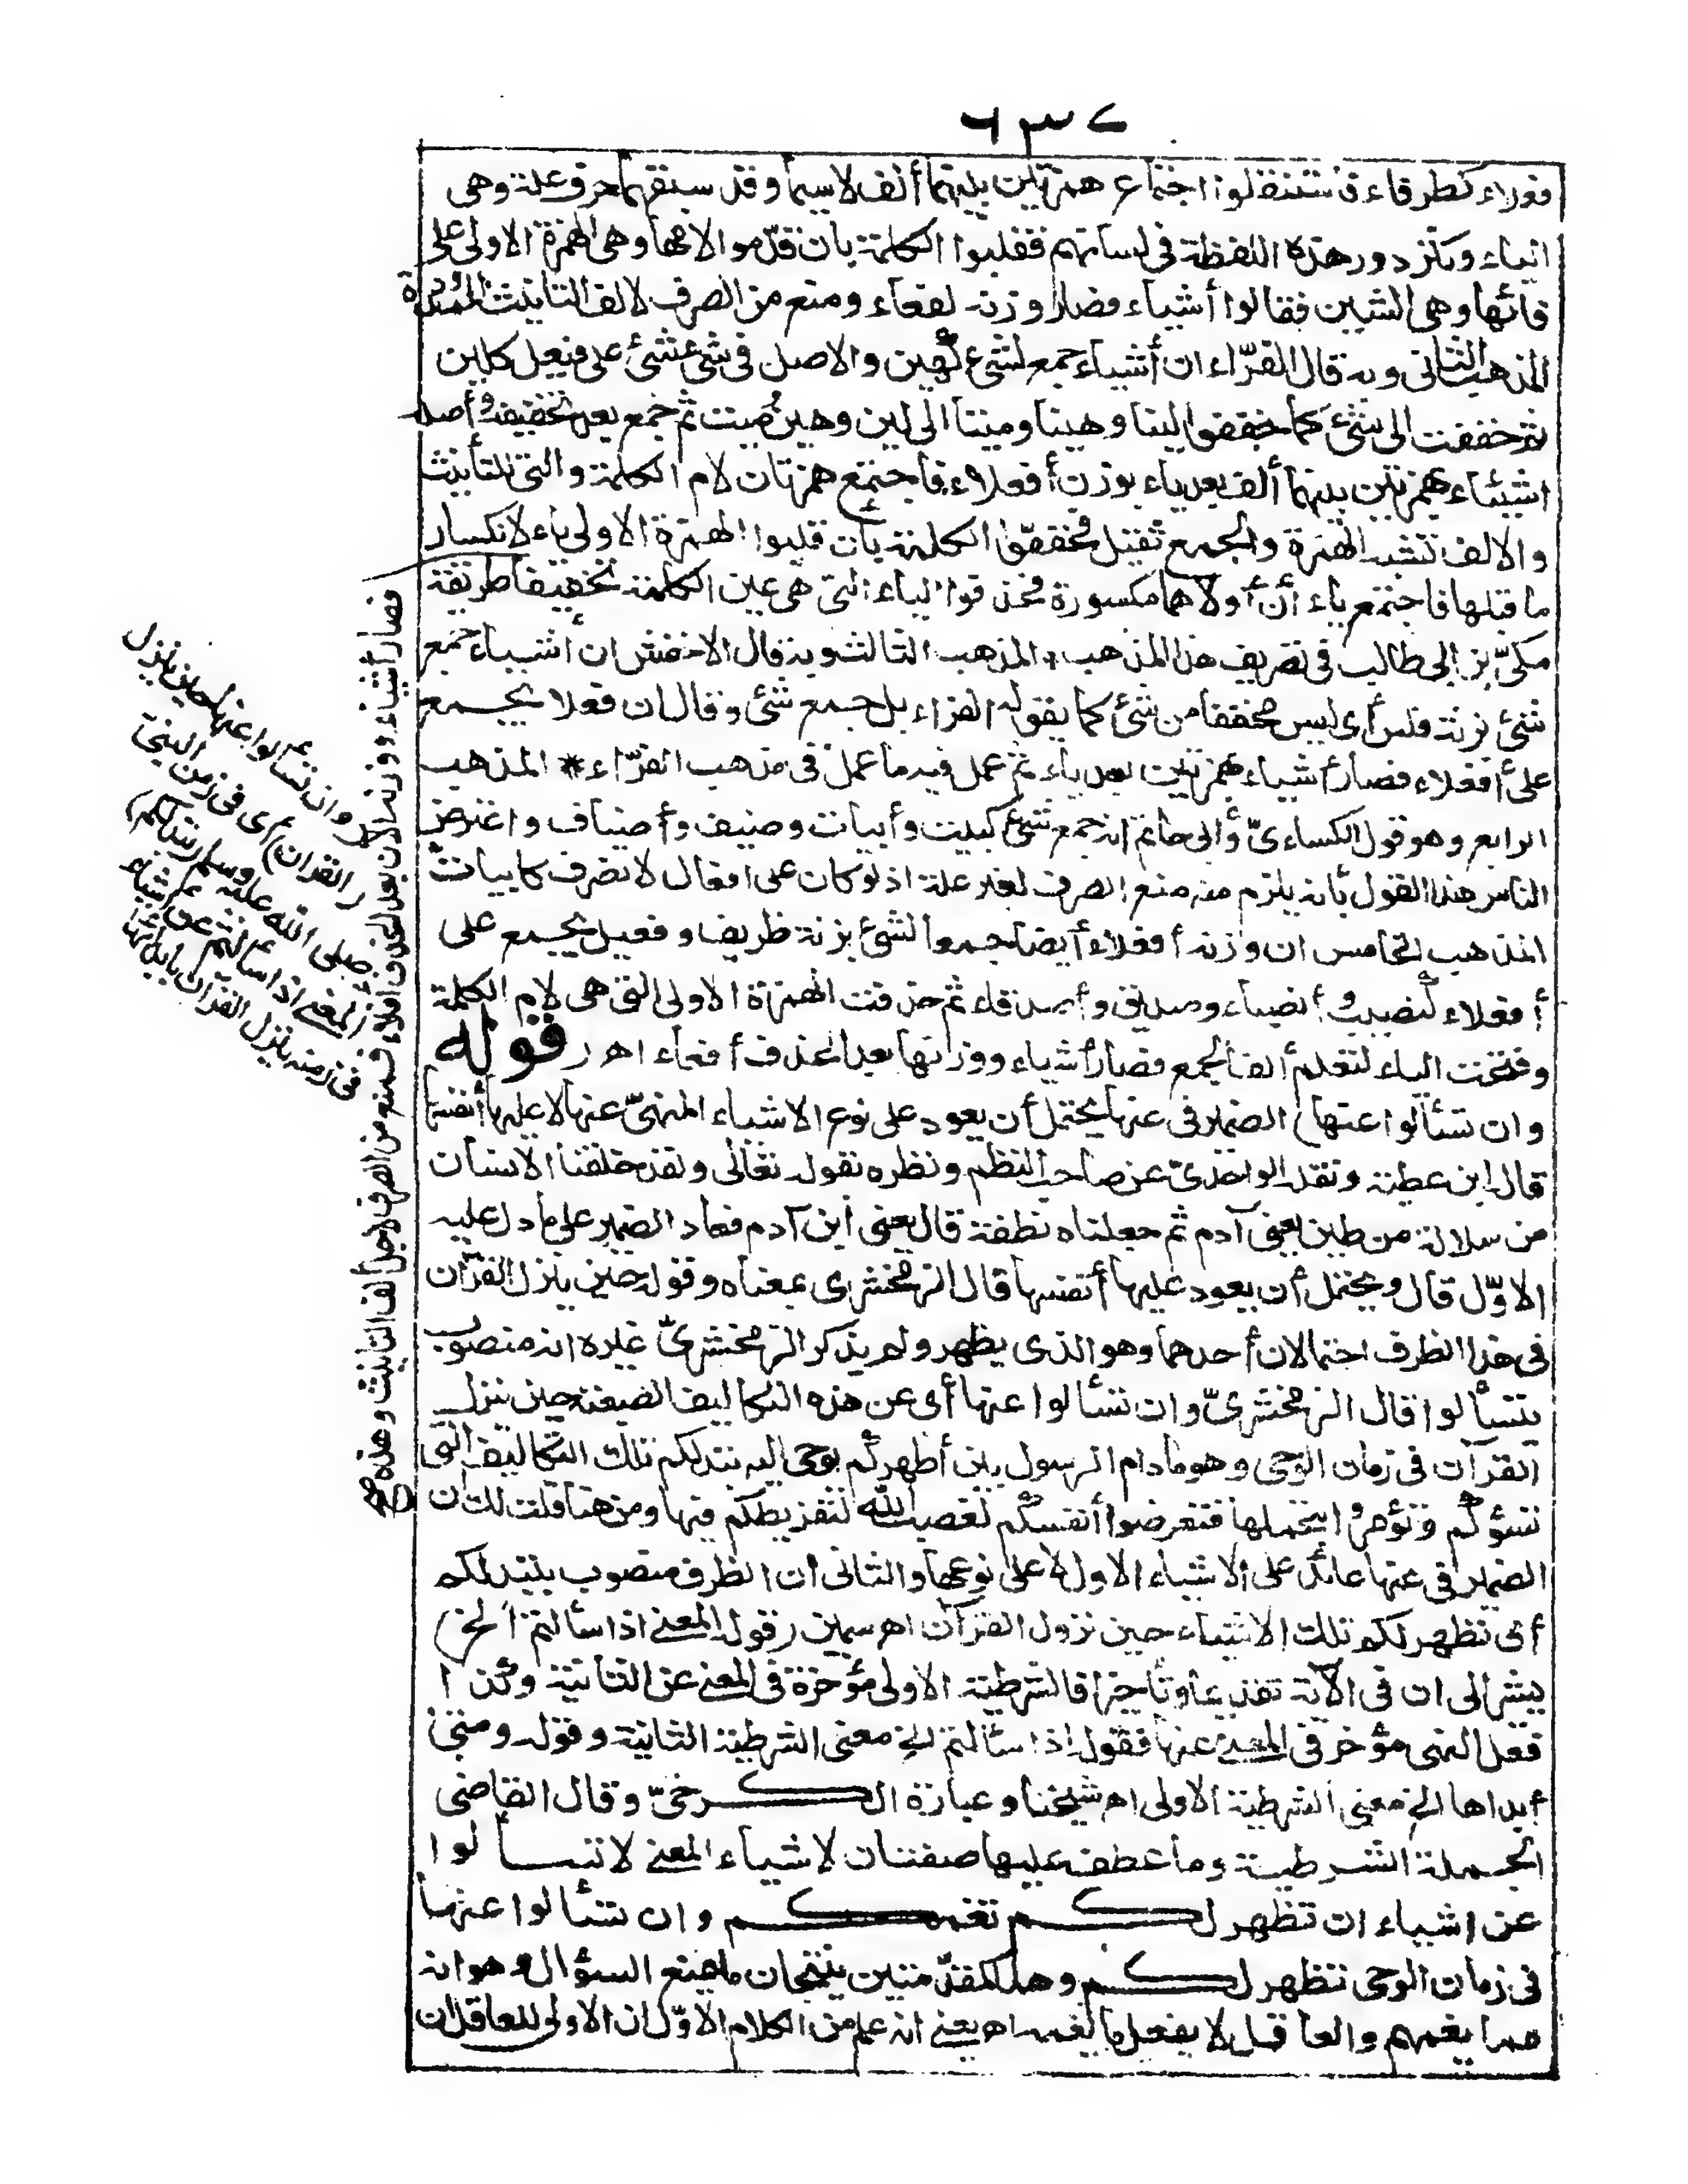 ٦٣٧
فعلاء كطرفاء فاستثقلوا اجتماع همزتين بينهما ألف لاسيما وقد سبقهما حرف علة وهى
الياء وكثر دور هذه اللفظة فى لسانهم فقلبوا الكلمة بأن قدّموا لامها وهى الهمزة الاولى على
فائها وهى الشين فقالوا أشياء فصار وزنه لفعاء ومنع من الصرف لالف التأنيث الممدودة
المذهب الثانى وبه قال الفرّاء ان أشياء جمع لشئ كهين والاصل فى شئ شيئ على فيعل كلين
ثم خففت الى شئ كما خففوا لينا وهينا وميتا الى لين وهين وميت ثم جمع بعد تخفيفه وأصله
اشيئاء بهمزتين بينهما ألف بعد ياء بوزن أفعلاء فاجتمع همزتان لام الكلمة والتى للتأنيث
والالف تشبه الهمزة والجمع ثقيل فخففوا الكلمة بأن قلبوا الهمزة الاولى ياء لانكسار
ما قبلها فاجتمع ياءان أولاهما مكسورة فحذفوا الياء التى هى عين الكلمة تخفيفا طريقة
مكىّ بن ابى طالب فى تصريف هذا المذهب المذهب الثالث وبه قال الاخفش ان أشياء جمع
شئ بزنة فلس أى ليس مخففا من شئ كما يقوله الفراء بل جمع شئ وقال ان فعلا يجمع
على أفعلاء فصار أشيياء بهمزتين بعد ياء ثم عمل فيه ما عمل فى مذهب الفرّاء * المذهب
الرابع وهو قول الكساءىّ وأبى حاتم انه جمع شئ كبيت وأبيات وضيف وأضياف واعترض
الناس هذا القول بأنه يلزم منه منع الصرف لغير علة اذ لو كان على افعال لانصرف كابيات
المذهب الخامس ان وزنه أفعلاء أيضا جمعا لشئ بزنة ظريف وفعيل يجمع على
أفعلاء كنصيب وأنصباء وصديق وأصدقاء ثم حذفت الهمزة الاولى التى هى لام الكلمة
وفتحت الياء لتعلم ألف الجمع فصار أشياء ووزنها بعد الحذف أفعاء اه ر قوله
وان تسألوا عنها) الضمير فى عنها يحتمل أن يعود على نوع الاشياء المنهىّ عنها لا عليها أنفسها
قال ابن عطية ونقله الواحدىّ عن صاحب النظم ونظره بقوله تعالى ولقد خلقنا الانسان
من سلالة من طين يعنى آدم ثم جعلناه نطفة قال يعنى ابن آدم فعاد الضمير على ما دل عليه
الاوّل قال ويحتمل أن يعود عليها أنفسها قال الزمخشرى بمعناه وقوله حين ينزل القرآن
فى هذا الظرف احتمالان أحدهما وهو الذى يظهر ولم يذكر الزمخشرىّ غيره انه منصوب
بتسألوا قال الزمخشرىّ وان تسألوا عنها أى عن هذه التكاليف الصعبة حين ينزل
القرآن فى زمان الوحى وهو مادام الرسول بين أظهركم يوحى اليه تبد لكم تلك التكاليف التى
تسؤكم وتؤمروا بتحملها فتعرضوا أنفسكم لغضب الله لتفريطكم فيها ومن هنا قلت لك ان
الضمير فى عنها عائد على الاشياء الاول لا على نوعها والثانى أن الظرف منصوب بتبد لكم
أى تظهر لكم تلك الاشياء حين نزول القرآن اه سمين (قوله المعنى اذا سألتم الخ)
يشير الى ان فى الآية تقديما وتأخيرا فالشرطية الاولى مؤخرة فى المعنى عن الثانية وكذا
فعل النهى مؤخر فى المعنى عنها فقوله اذا سألتم الخ معنى الشرطية الثانية وقوله ومتى
أبداها الخ معنى الشرطية الاولى اه شيخنا وعبارة الكرخىّ وقال القاضى
الجملة الشرطية وما عطف عليها صفتان لاشياء المعنى لا تسألوا
عن اشياء ان تظهر لكم تغمكم وان تسألوا عنها
فى زمان الوحى تظهر لكم وهما كمقدّمتين ينتجان ما يمنع السؤال وهو انه
مما يغمهم والعاقل لا يفعل ما يغمه اه يعنى انه علم من الكلام الاوّل ان الاولى للعاقل ان
فصار أشياء ووزنه الآن بعد الحذف أفلاء فمنع من الصرف لاجل ألف التأنيث وهذه
(وان تسألوا عنها حين ينزل
القرآن) أى فى زمن النبى
صلى الله عليه وسلم (تبد لكم)
المعنى اذا سألتم عن أشياء
فى زمنه ينزل القرآن بابدائها